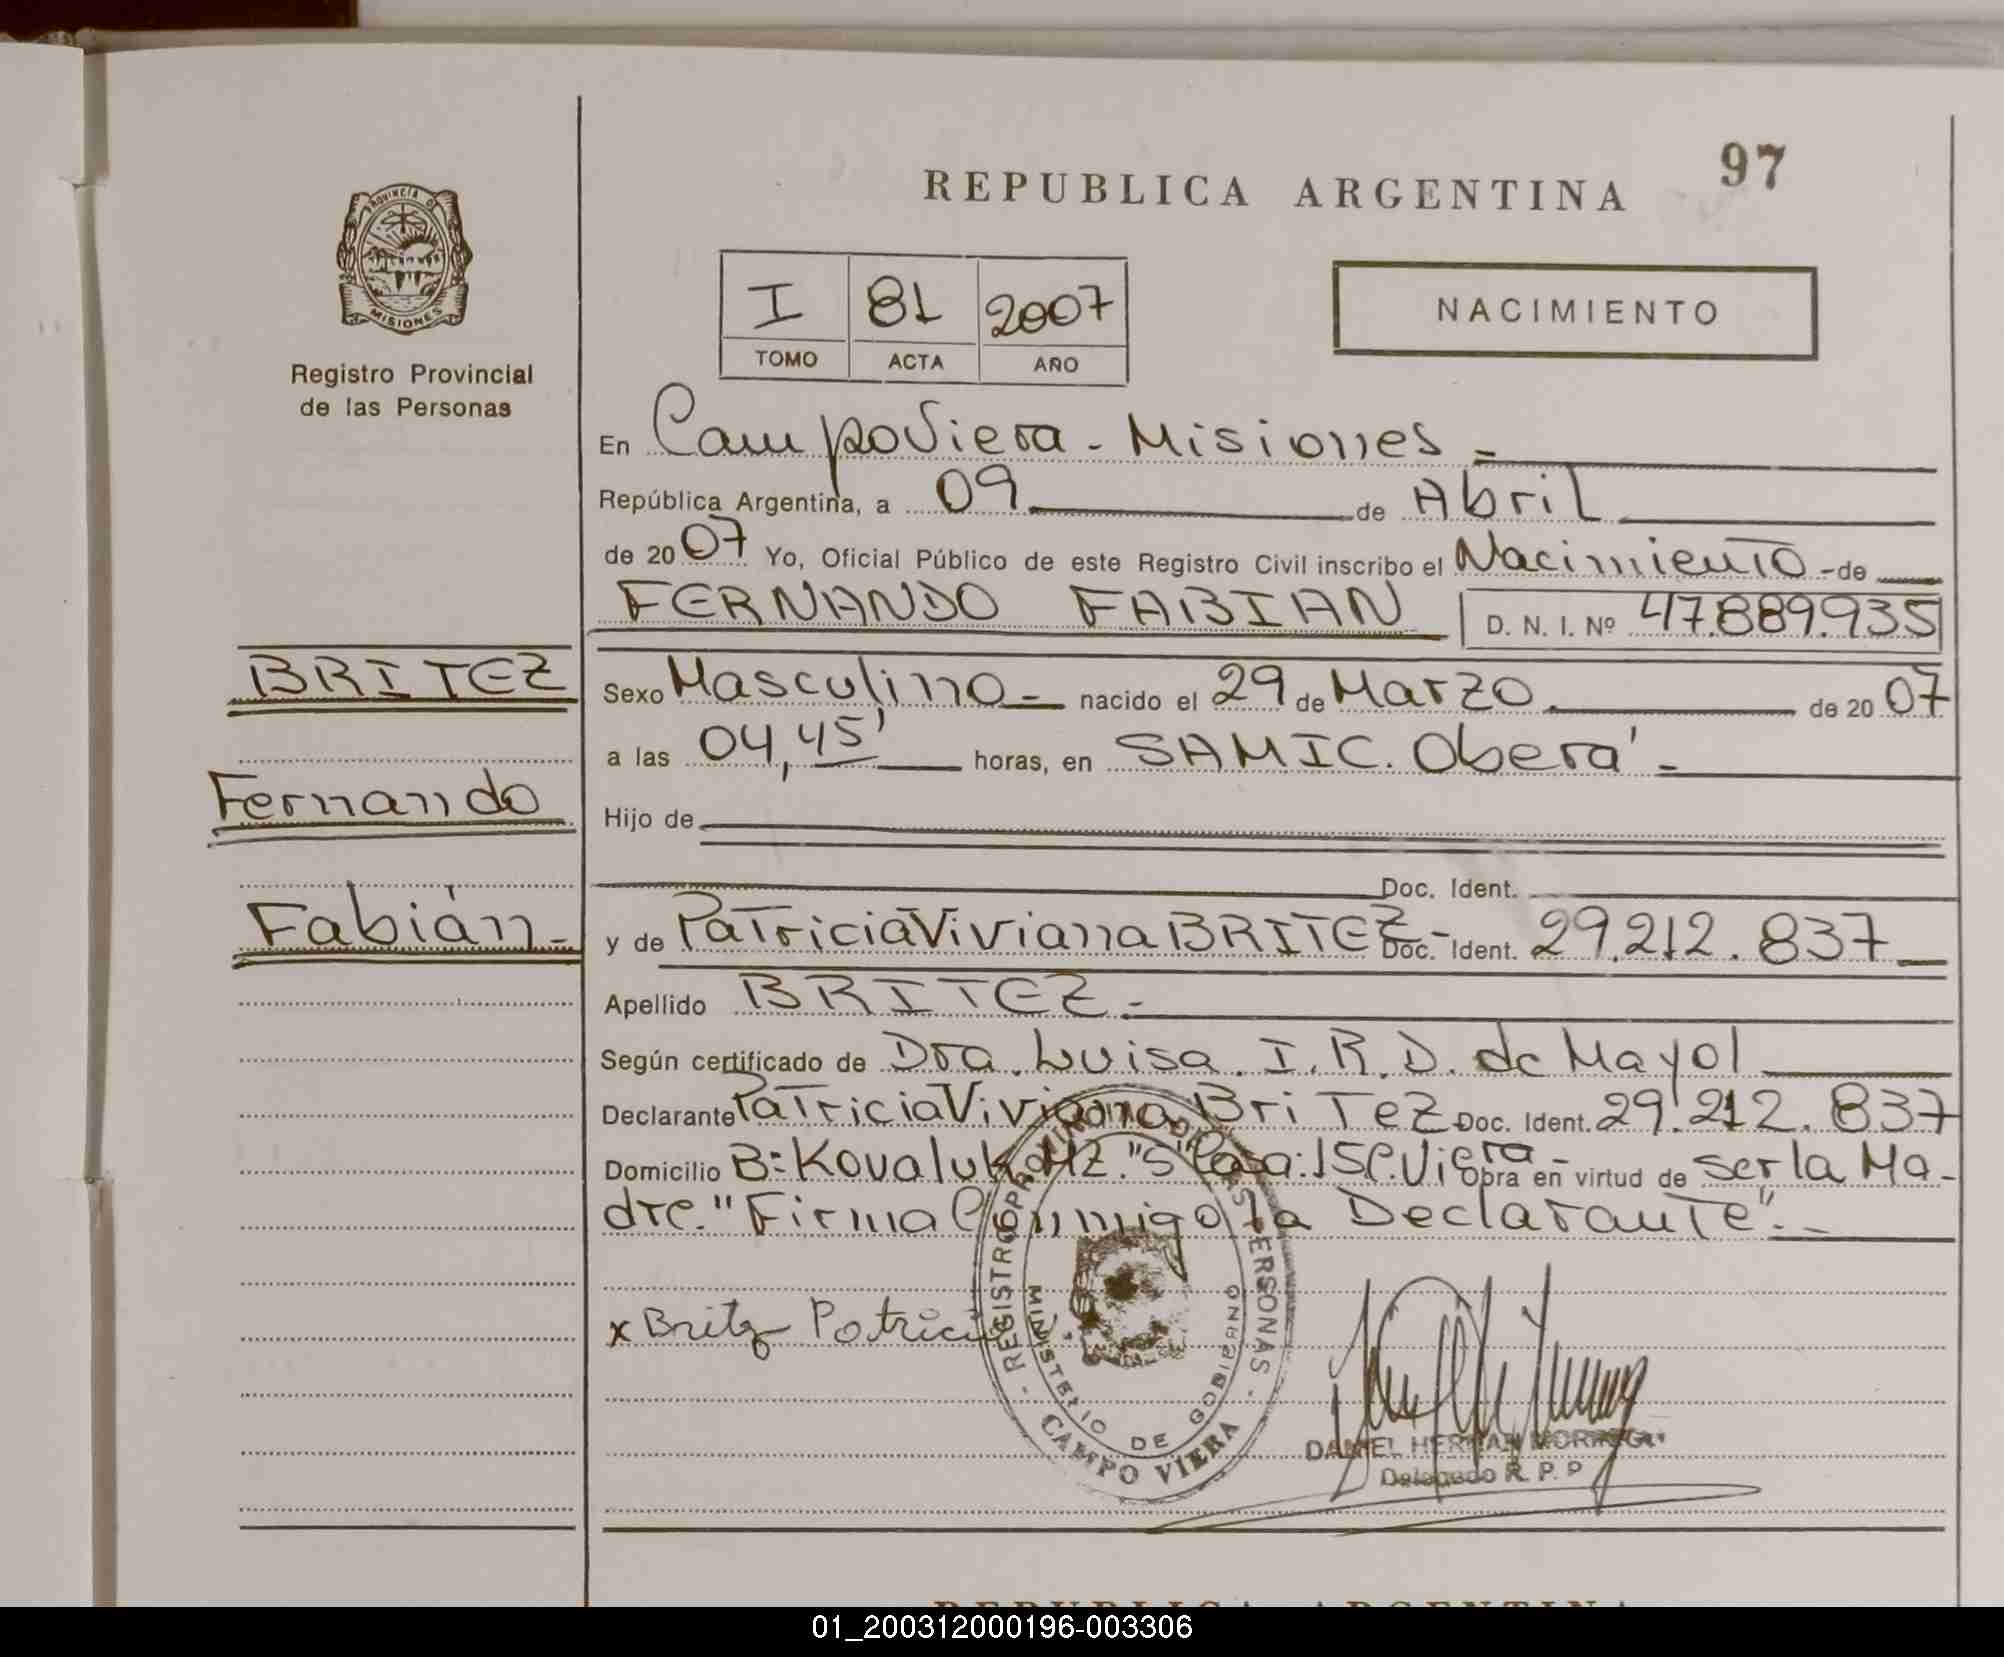 97
REPUBLICA ARGENTINA
PROVINCIA D
MISIONES
Registro Provincial
de las Personas
I 81 2007
TOMO ACTA AÑO
NACIMIENTO
En Campo Viera - Misiones -
República Argentina, a 09 de Abril
de 2007 Yo, Oficial Público de este Registro Civil inscribo el Nacimiento - de
FERNANDO FABIAN D. N. I. Nº 47.889.935
BRITEZ
Fernando
Fabián -
Sexo Masculino - nacido el 29 de Marzo de 2007
a las 04,45' horas, en SAMIC. Oberá -
Hijo de
Doc. Ident.
y de Patricia Viviana BRITEZ - Doc. Ident. 29.212.837
Apellido BRITEZ -
Según certificado de Dra. Luisa. I. R. D. de Mayol
Declarante Patricia Viviana Britez Doc. Ident. 29.212.837
Domicilio B: Kovaluk MZ. "S" Casa: 15 C. Viera - Obra en virtud de ser la Ma-
dre. "Firma Conmigo la Declarante". -
x Britez Patricia
REGISTRO PROVINCIAL DE LAS PERSONAS
MINISTERIO DE GOBIERNO
CAMPO VIERA
DANIEL HERNAN
Delegado R. P. P
REPUBLICA ARGENTINA
01_200312000196-003306